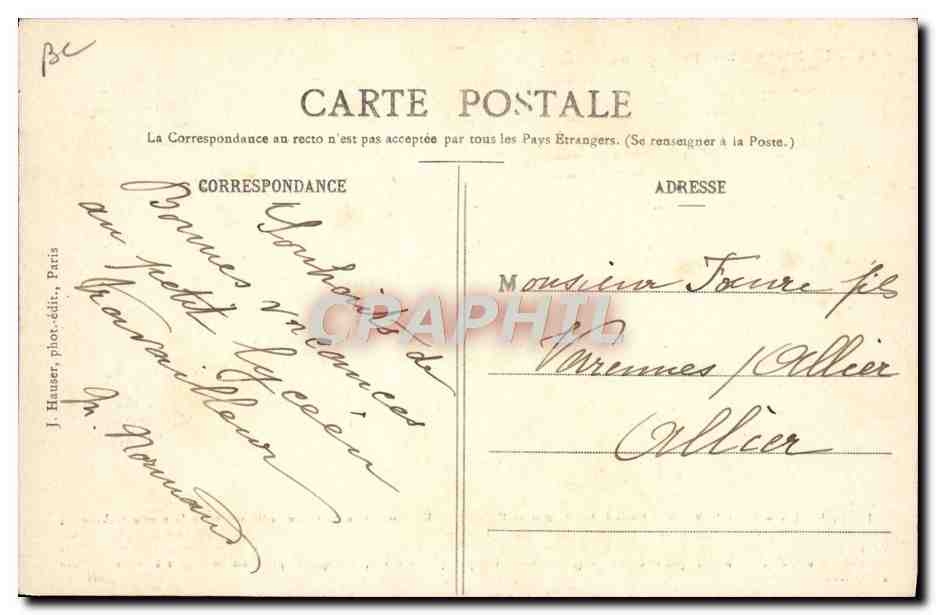 BC
CARTE POSTALE
La Correspondance au recto n'est pas acceptée par tous les Pays Étrangers. (Se renseigner à la Poste.)
CORRESPONDANCE
Souhaits de
Bonnes vacances
au petit lycéen
travailleur
M. Normand
J. Hauser, phot.-édit., Paris
ADRESSE
Monsieur Faure fils
Varennes /Allier
Allier
CRAPHIL